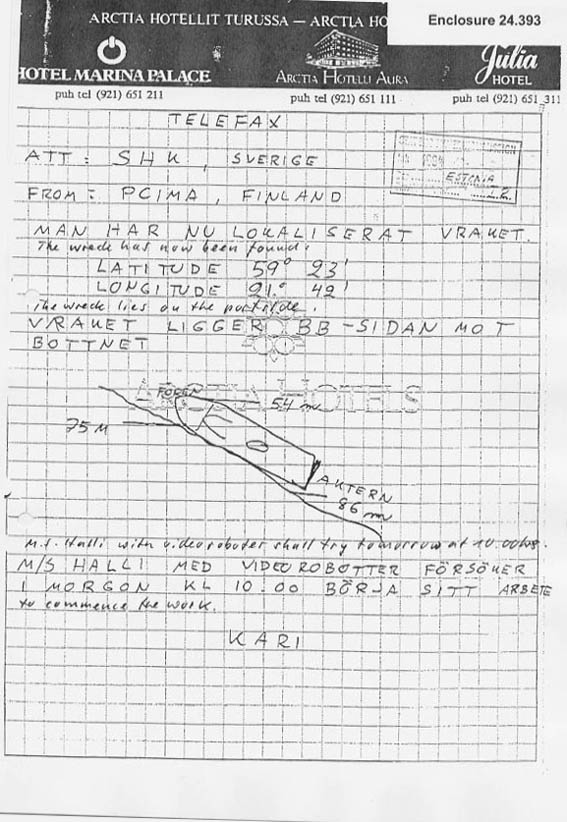 ARCTIA HOTELLIT TURUSSA — ARCTIA HO
Enclosure 24.393
HOTEL MARINA PALACE
ARCTIA HOTELLI AURA
Julia
HOTEL
puh tel (921) 651 211
puh tel (921) 651 111
puh tel (921) 651 311
TELEFAX
ATT: SHK, SVERIGE
ESTONIA
FROM: PCIMA, FINLAND
MAN HAR NU LOKALISERAT VRAKET.
The wreck has now been found:
LATITUDE 59° 23'
LONGITUDE 21° 42'
The wreck lies on the portside.
VRAKET LIGGER BB-SIDAN MOT
BOTTNET
ARCTIA HOTELS
FÖREN
54 m
75 M
AKTERN
86 m
M.S. Halli with videoroboter shall try tomorrow at 10.00 hrs.
M/S HALLI MED VIDEOROBOTTER FÖRSÖKER
I MORGON KL 10.00 BÖRJA SITT ARBETE
to commence the work.
KARI